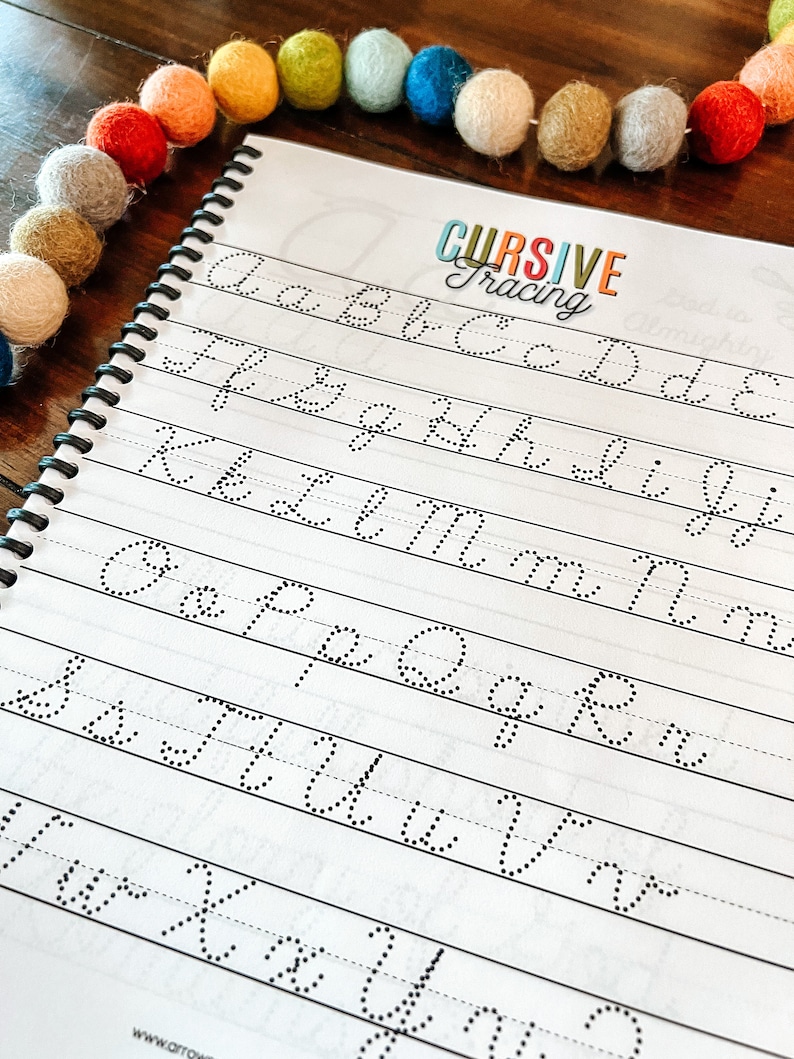 CURSIVE
Tracing
A a B b C c D d E
F f G g H h I i J j
K k L l M m N n
O o P p Q q R r
S s T t U u V v
W w X x Y y Z
God is
Almighty
www.arrow